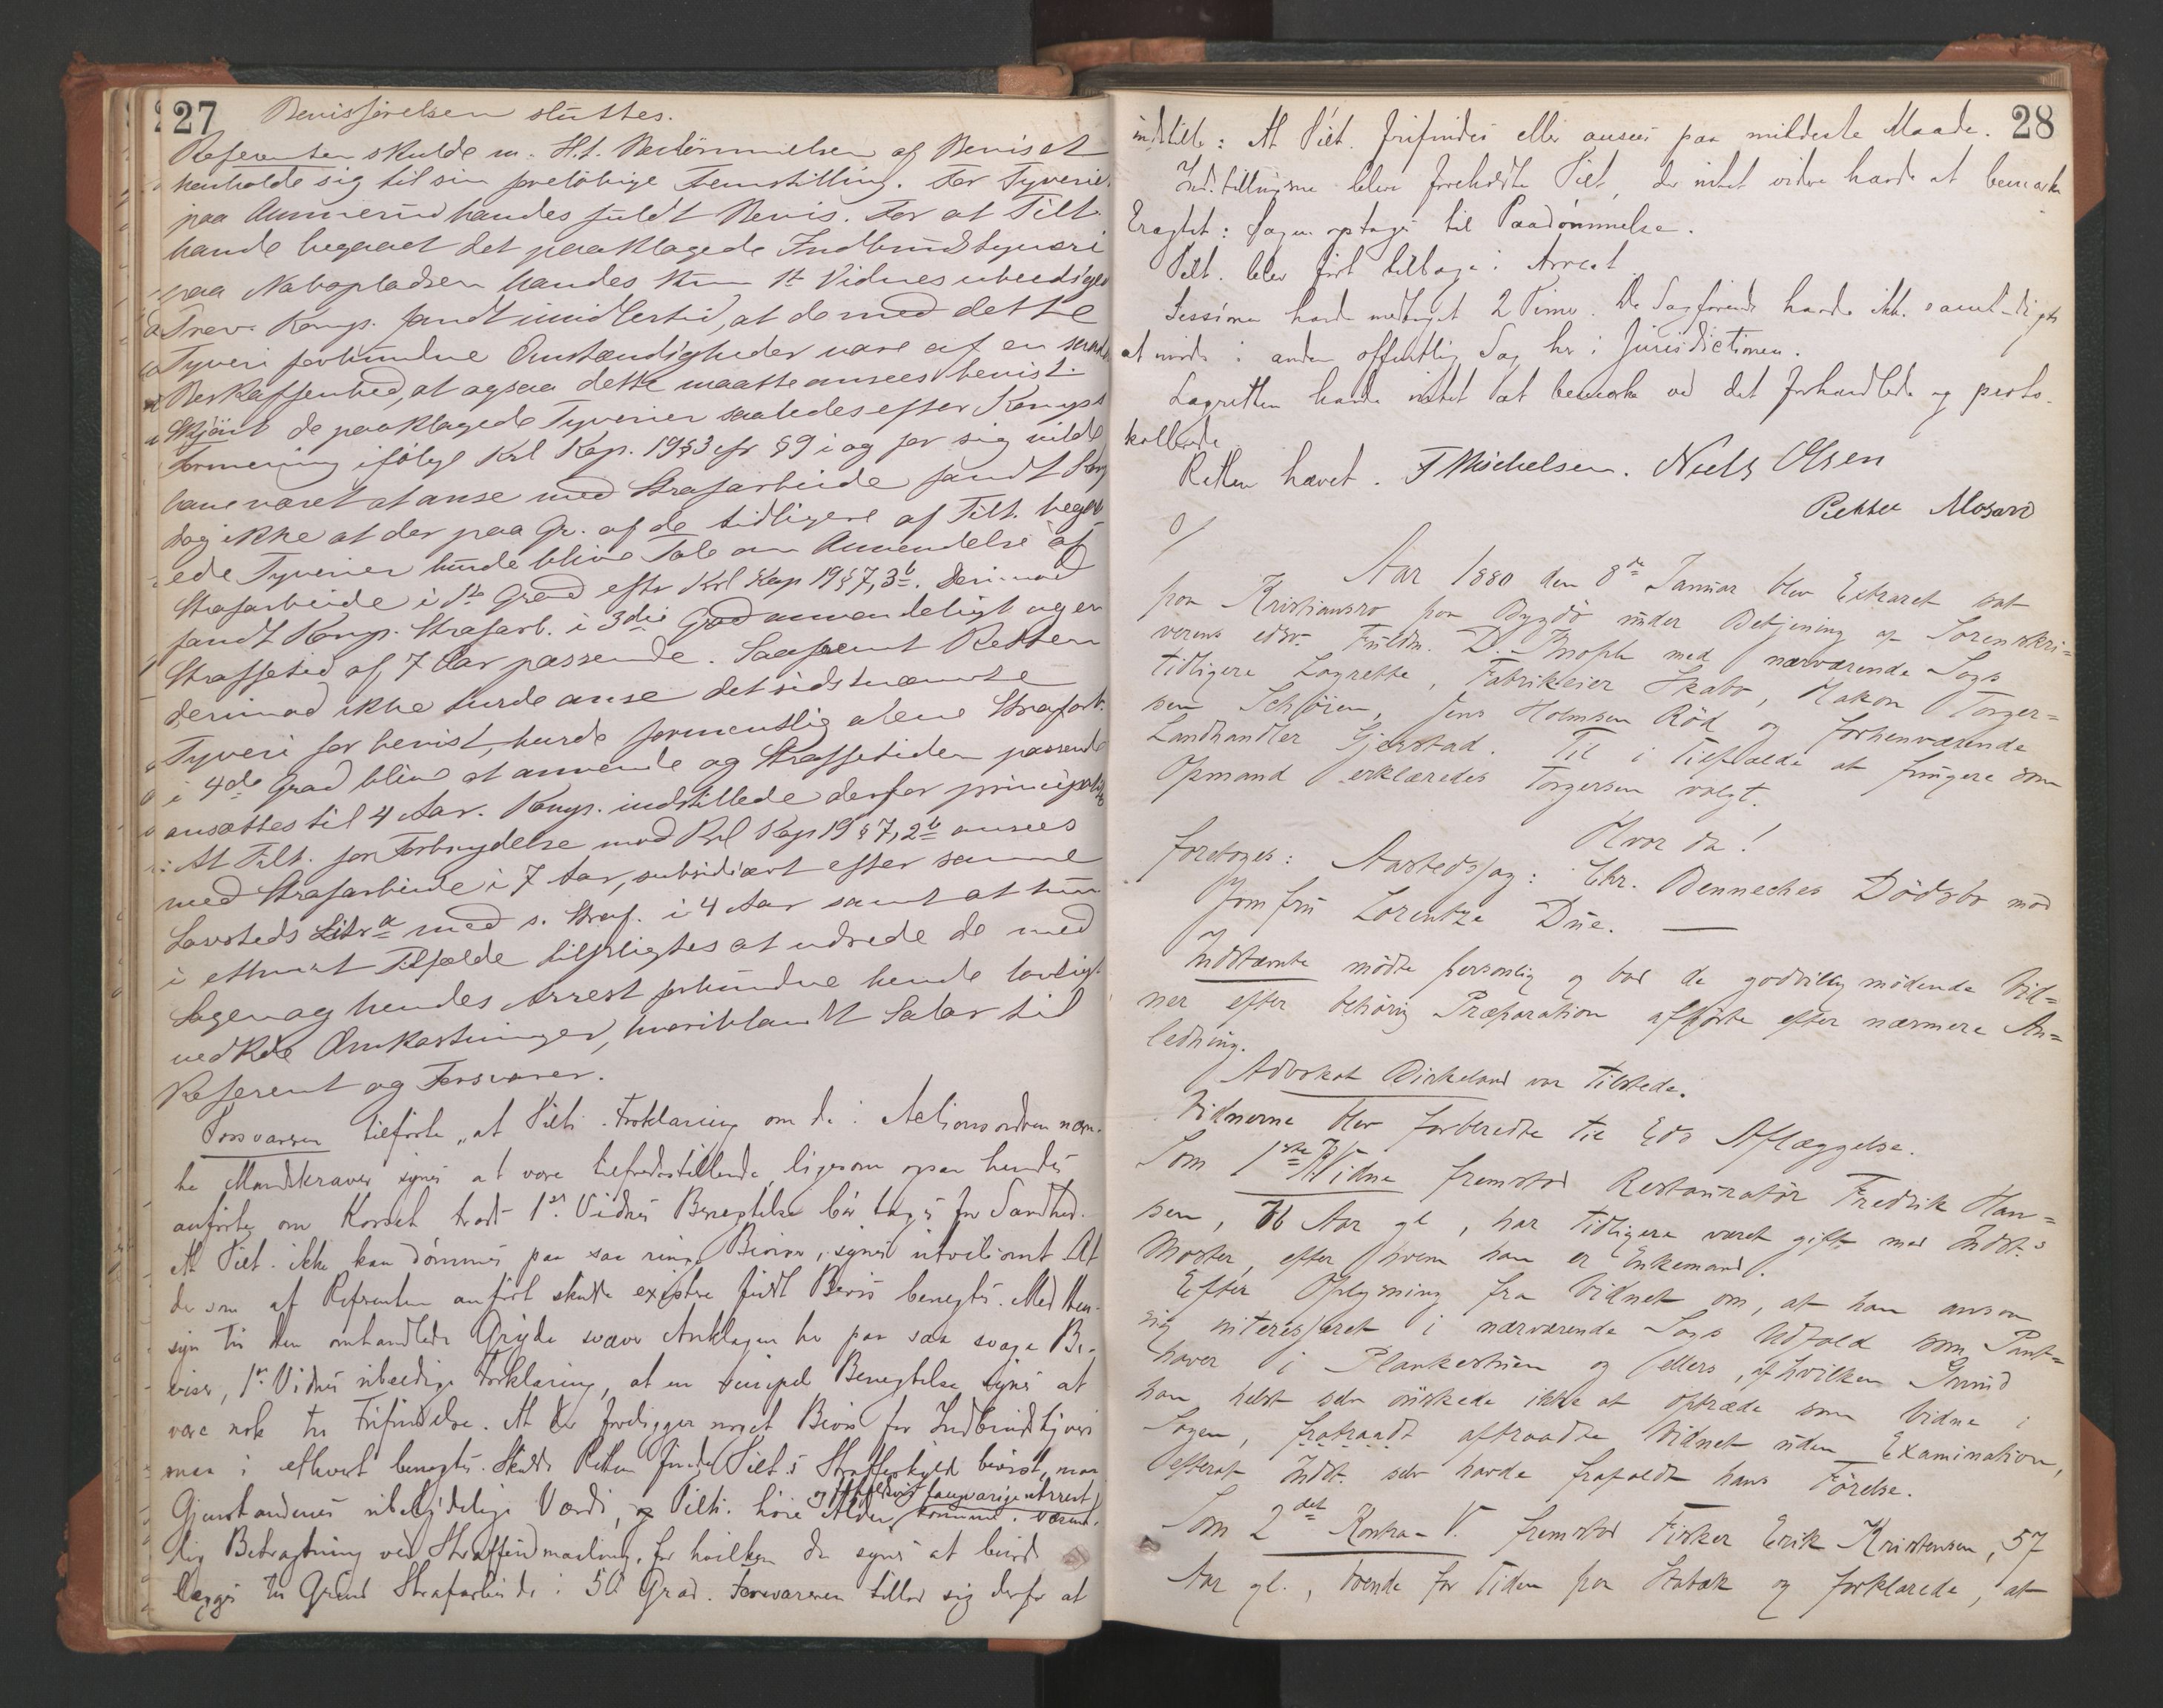 27
Bevisførelsen sluttes.
Referenten skulde m. H. t. Bedømmelsen af Beviset
henholde sig til sin foreløbige Fremstilling. For Tyveriet
paa Ammerud havdes fuldt Bevis. For at Tilt.
havde begaaet det paaklagede Indbrudstyveri
paa Nabopladsen havdes kun 1t Vidnes ubeedigede
Prov. Komp. fandt imidlertid, at de med dette
Tyveri forbundne Omstændigheder vare af en saadan
Beskaffenhed, at ogsaa dette maatte ansees bevist.
Skjønt de paaklagede Tyverier saaledes efter Komps
Formening ifølge Krl Kap. 19 § 3 cfr § 9 i og for sig vilde
have været at anse med Strafarbeide fandt Komp
dog ikke at der paa Gr. af de tidligere af Tilt. begaa-
ede Tyverier burde blive Tale om Anvendelse af
Strafarbeide i 1ste Grad efter Krl Kap 19 § 7, 3b. Derimod
fandt Komp. Strafarb. i 3die Grad anvendeligt og en
Straffetid af 7 Aar passende. Saafremt Retten
derimod ikke turde anse det sidstnævnte
Tyveri for bevist, burde formentlig alene Strafarb.
i 4de Grad blive at anvende og Straffetiden passende
ansættes til 4 Aar. Komp. indstillede derfor principaliter
: At Tilt. for Forbrydelse mod Krl Kap 19 § 7, 2b ansees
med Strafarbeide i 7 Aar, subsidiært efter samme
Lovsteds Litr a med s. Straf. i 4 Aar samt at hun
i ethvert Tilfælde tilpligtes at udrede de med
Sagen og hendes Arrest forbundne hende lovligt
vedkde Omkostninger, hvoriblandt Salær til
Referent og Forsvarer.
Forsvareren tilførte, "at Tilts Forklaring om de i Actionsordren nævn-
te Mandskraver synes at være tilfredsstillende, ligesom ogsaa hendes
anførte om Korset trods 1ste Vidnes Benegtelse bør tages for Sandhed.
At Tilt. ikke kan dømmes paa saa ringe Beviser, synes utvilsomt. At
der som af Referenten anført skulde existere fuldt Bevis benegtes. Med Hen-
syn til den omhandlede Gryde svæver Anklagen her paa saa svage Be-
viser, 1ste Vidnes ubeedige Forklaring, at en simpel Benegtelse synes at
være nok til Frifindelse. At der foreligger noget Bevis for Indbrudstyveri
maa i ethvert benegtes. Skulde Retten finde Tilt.s Strafferskyld bevist, maa
og forholdsvis langvarige Arrest
Gjenstandenes ubetydelige Værdi, og Tilts. høie Alder, komme i væsent-
lig Betragtning ved Straffeudmaaling, for hvilken der synes at burde
lægges til Grund Strafarbeide i 5te Grad. Forsvareren tillod sig derfor at
28
indstille: At Tilt. frifindes eller ansees paa mildeste Maade.
Indstillingerne bleve foreholdte Tilt, der intet videre havde at bemærke
Eragtet: Sagen optages til Paadømmelse.
Tilt. blev ført tilbage i Arrest.
Sessionen havde medtaget 2 Timer. De Sagførende havde ikke samtidigt
at møde i anden offentlig Sag her i Jurisdictionen.
Lagretten havde intet at bemærke ved det forhandlede og proto-
kollerede
Retten hævet. F Michelsen. Niels Olsen
Petter Mosero
Aar 1880 den 8de Januar blev Extraret sat
paa Kristiansro paa Bygdø under Betjening af Sorenskri=
verens edsv. Fuldm. D. Knoph med nærværende Sags
tidligere Lagrette, Fabrikeier Skabo, Hakon Torger=
sen Schøien, Jens Holmsen Rød og forhenværende
Landhandler Gjerstad. Til i Tilfælde at fungere som
Opmand erklæredes Torgersen valgt.
Hvor da!
foretoges: Aastedssag: Chr. Benneches Dødsbo mod
Jomfru Lorentze Due.
Indstævnte mødte personlig og bad de godvillig mødende Vid=
ner efter behørig Præparation afhørte efter nærmere An=
ledning.
Advokat Birkeland var tilstede.
Vidnerne blev forberedte til Eds Aflæggelse.
Som 1ste Vidne fremstod Restauratør Fredrik Han=
sen, 76 Aar gl, har tidligere været gift med Indst.s
Moster, efter hvem han er Enkemand.
Efter Oplysning fra Vidnet om, at han ansaa
sig interesseret i nærværende Sags Udfald som Pant=
haver i Plankestuen og ellers, af hvilken Grund
han helst selv ønskede ikke at optræde som Vidne i
Sagen, fratraadt aftraadte Vidnet uden Examination,
efterat Indst. selv havde frafaldt hans Førelse.
Som 2det Kontra-V. fremstod Fisker Erik Kristensen, 57
Aar gl., boende for Tiden paa Stabæk og forklarede, at